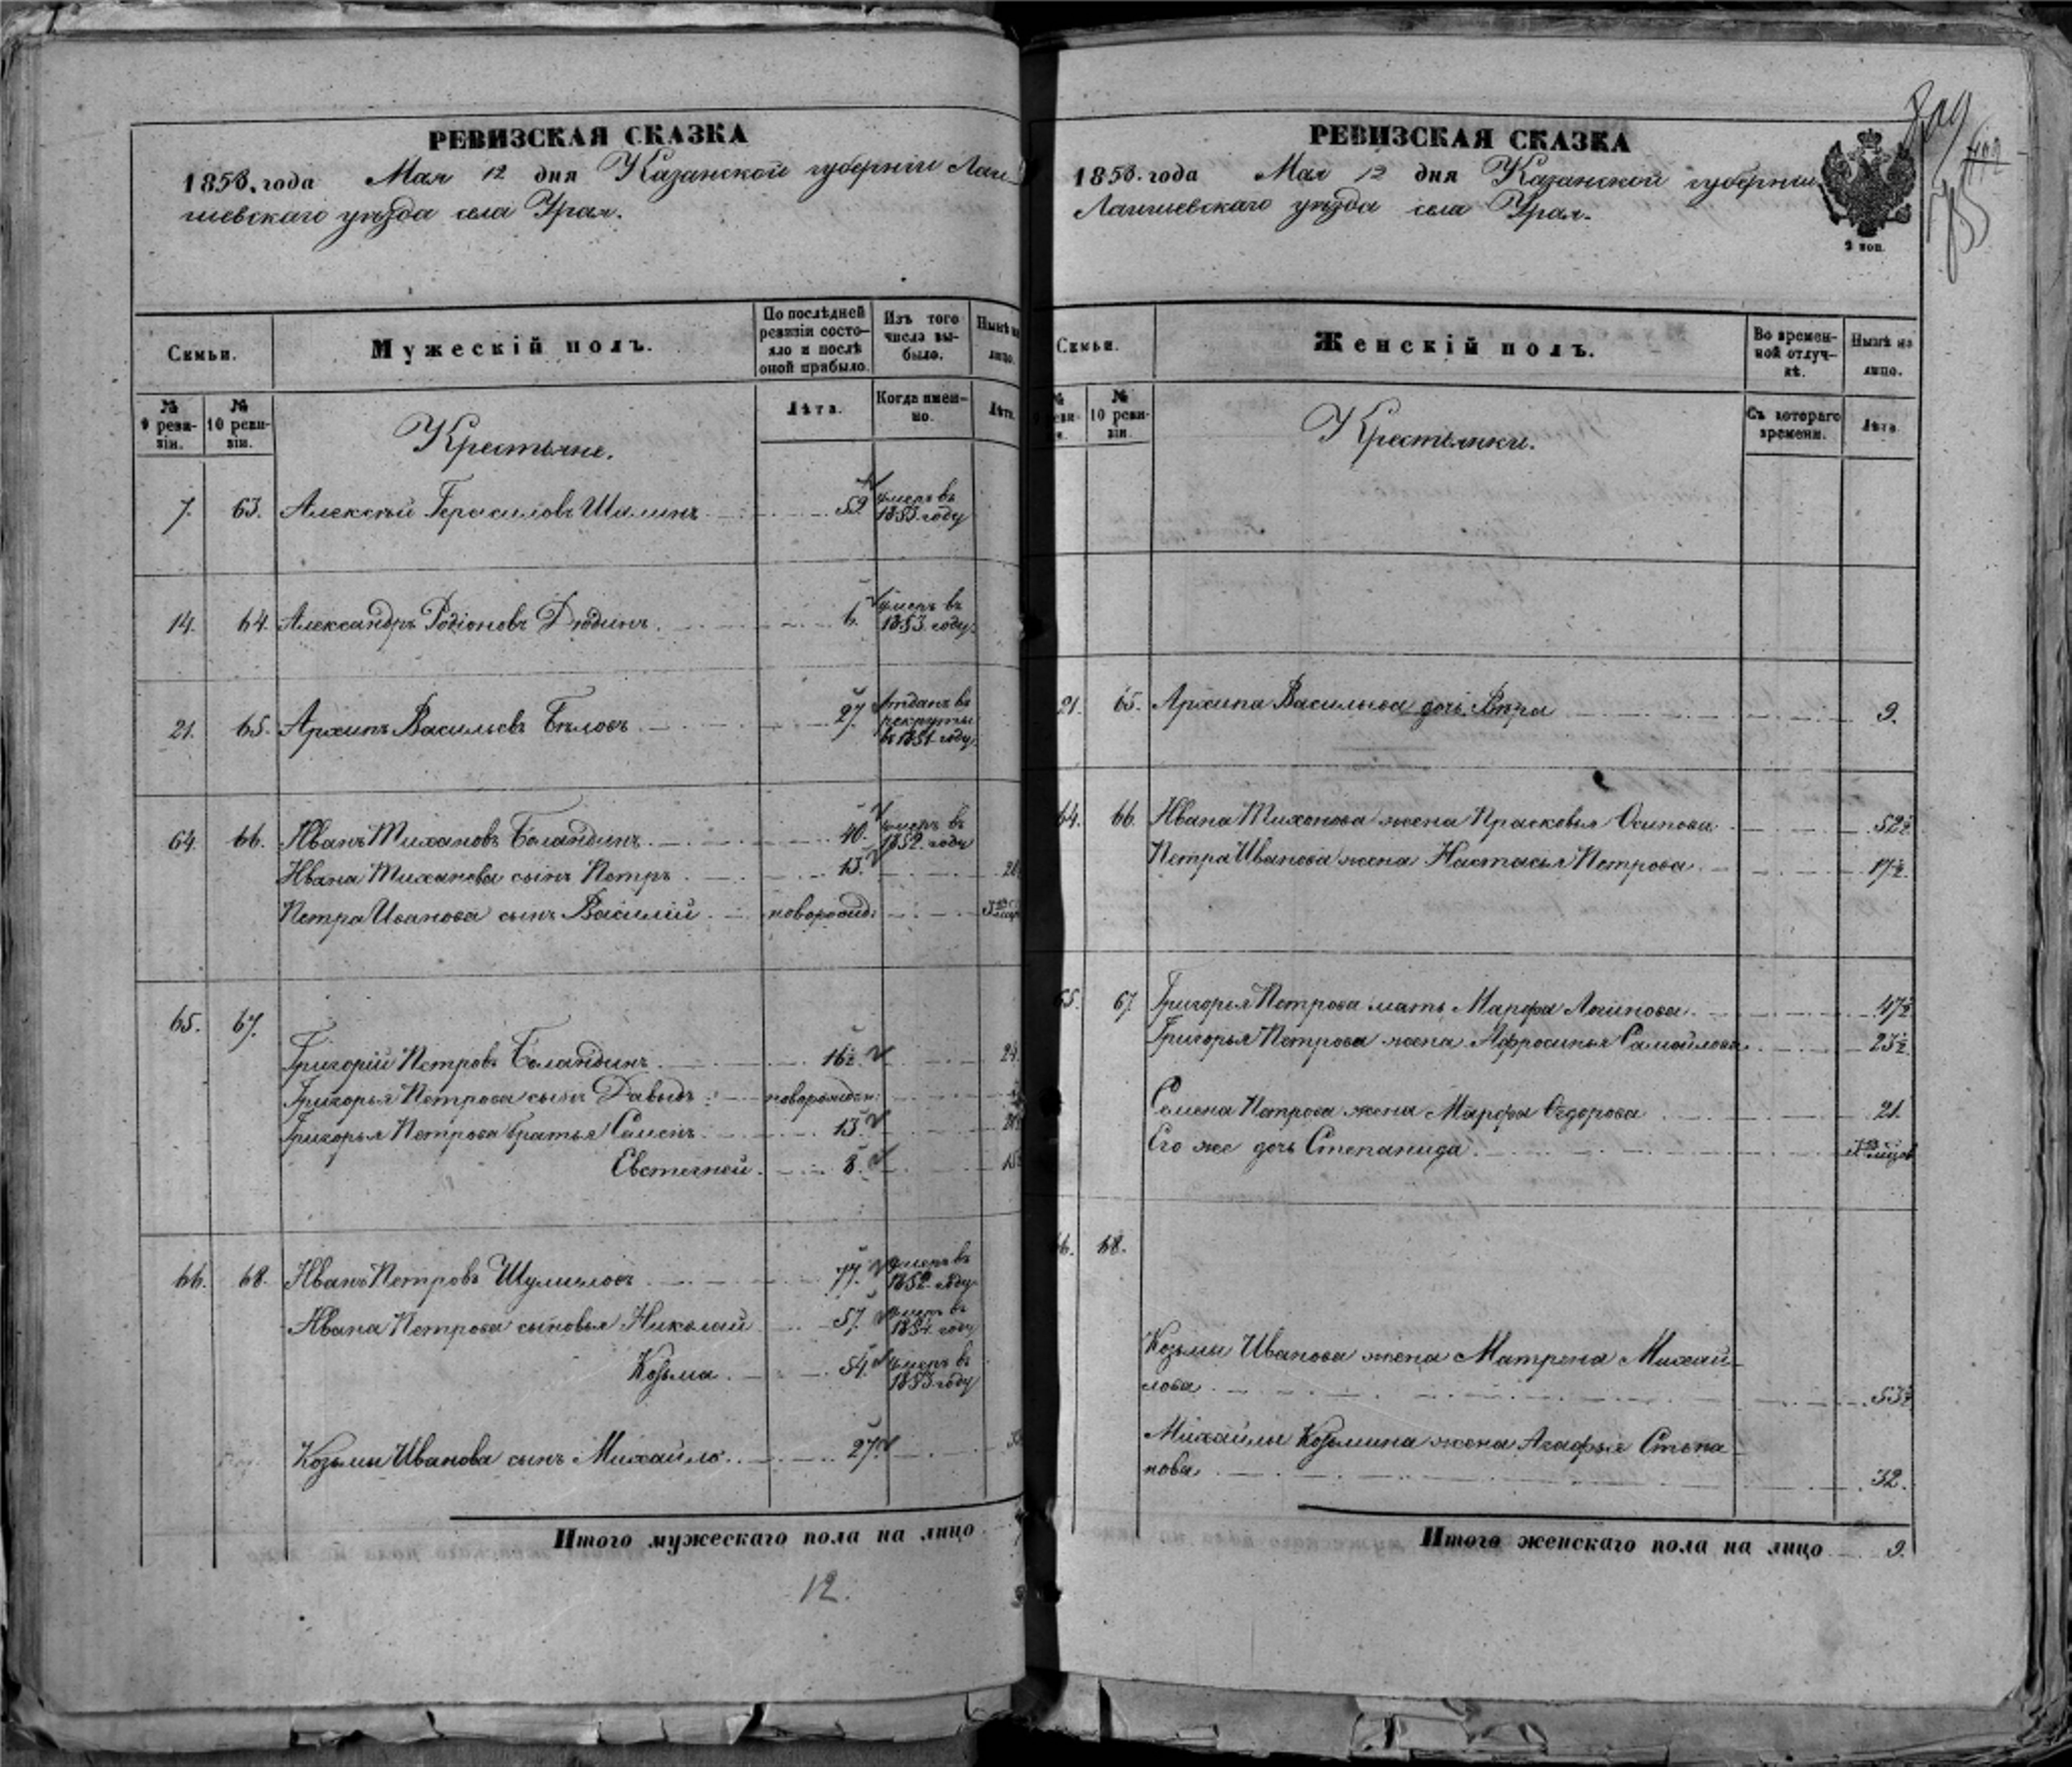 РЕВИЗСКАЯ СКАЗКА
1858. года Мая 12 дня Казанской губерніи Лаи-
шевскаго уѣзда села Урая.
Семьи.
Мужескій полъ.
По послѣдней ревизіи состояло и послѣ оной прибыло.
Изъ того числа выбыло.
Нынѣ на лицо.
№ 9 ревизіи.
№ 10 ревизіи.
Крестьяне.
Лѣта.
Когда именно.
Лѣта.
7. 63. Алексѣй Герасимовъ Шалинъ 59 умеръ въ 1853 году
14. 64. Александръ Родіоновъ Дюдинъ 6. умеръ въ 1853 году
21. 65. Архипъ Васильевъ Бѣловъ 27. отданъ въ рекруты въ 1854 году
64. 66. Иванъ Тихановъ Баландинъ 40. умеръ въ 1852 году
Ивана Тиханова сынъ Петръ 13.
Петра Иванова сынъ Василій новорожд:
65. 67.
Григорій Петровъ Баландинъ 16½
Григорья Петрова сынъ Давыдъ новорожден:
Григорья Петрова братья Семенъ 13.
Евстегней 8.
66. 68. Иванъ Петровъ Шумиловъ 77. умеръ въ 1852 году
Ивана Петрова сыновья Николай 57. умеръ въ 1854 году
Козьма 54. умеръ въ 1853 году
Козьмы Иванова сынъ Михайло 27.
Итого мужескаго пола на лицо
12.
РЕВИЗСКАЯ СКАЗКА
1858. года Мая 12 дня Казанской губерніи
Лаишевскаго уѣзда села Урая.
2 коп.
Семьи.
Женскій полъ.
Во временной отлучкѣ.
Нынѣ на лицо.
10 ревизіи.
Крестьянки.
Съ котораго времени.
Лѣта.
21. 65. Архипа Васильева дочь Вѣра 9.
64. 66. Ивана Тихонова жена Прасковья Осипова 52½
Петра Иванова жена Настасья Петрова 17½
65. 67. Григорья Петрова мать Марфа 47½
Григорья Петрова жена Афросинья Самойлова 23½
Семена Петрова жена Марфа Ѳедорова 21.
Его же дочь Степанида
66. 68.
Козьмы Иванова жена Матрена Михай-
лова 53½
Михайлы Козьмина жена Агафья Степа-
нова 32.
Итого женскаго пола на лицо 9.